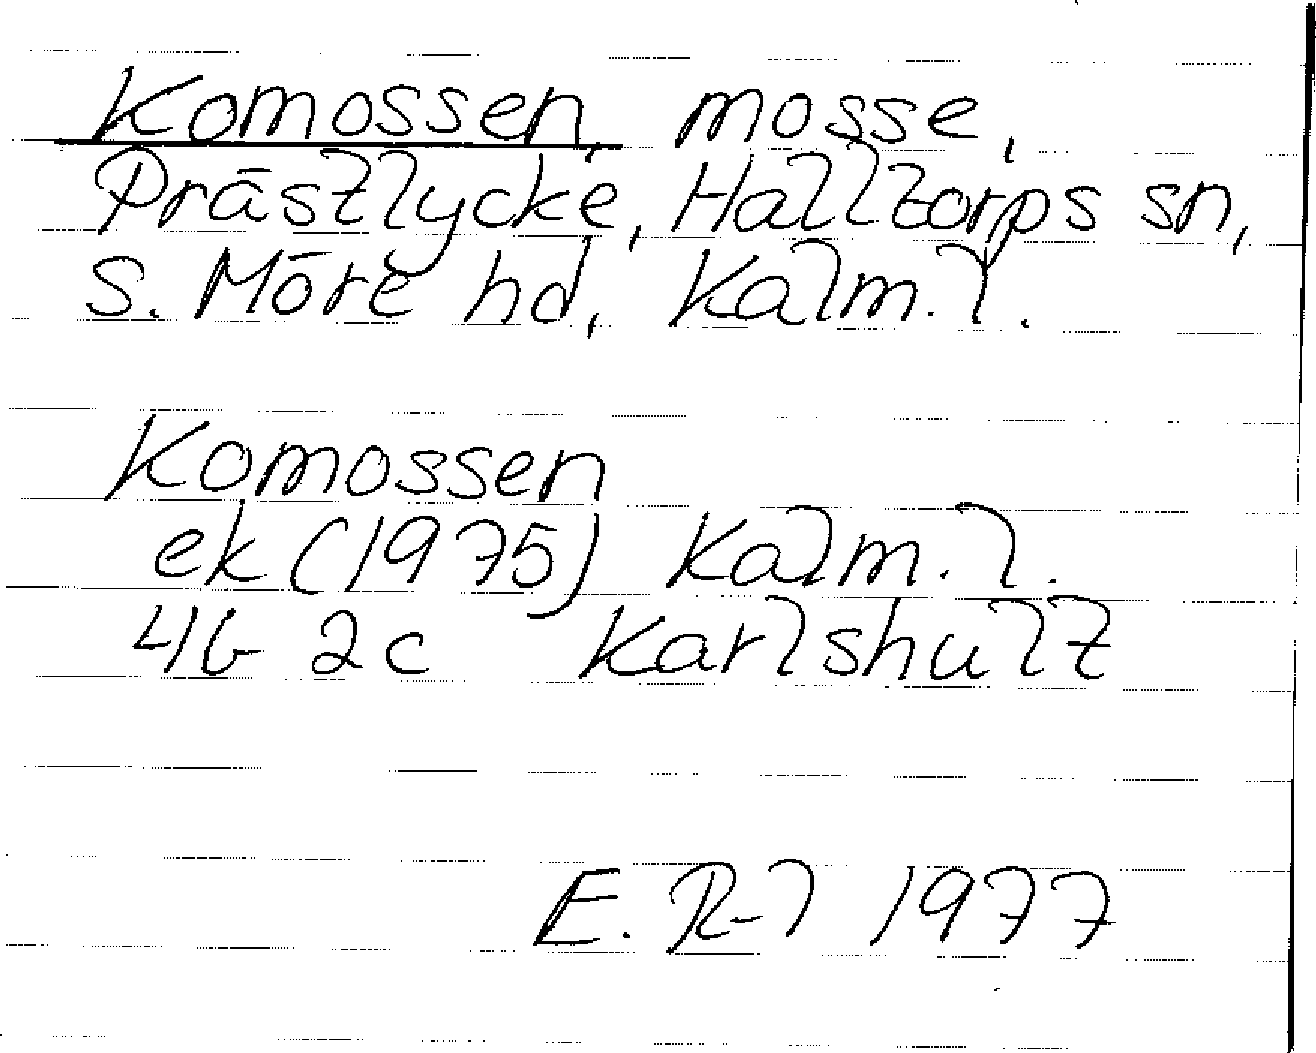 Komossen, mosse,
Prästlycke, Halltorps sn,
S. Möre hd, Kalm. l.
Komossen
ek (1975) Kalm. l.
4G 2c Karlshult
E. R-l 1977